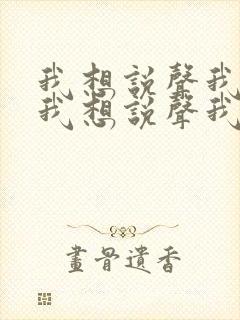 我想說聲我
我想說聲我
畫骨遺香